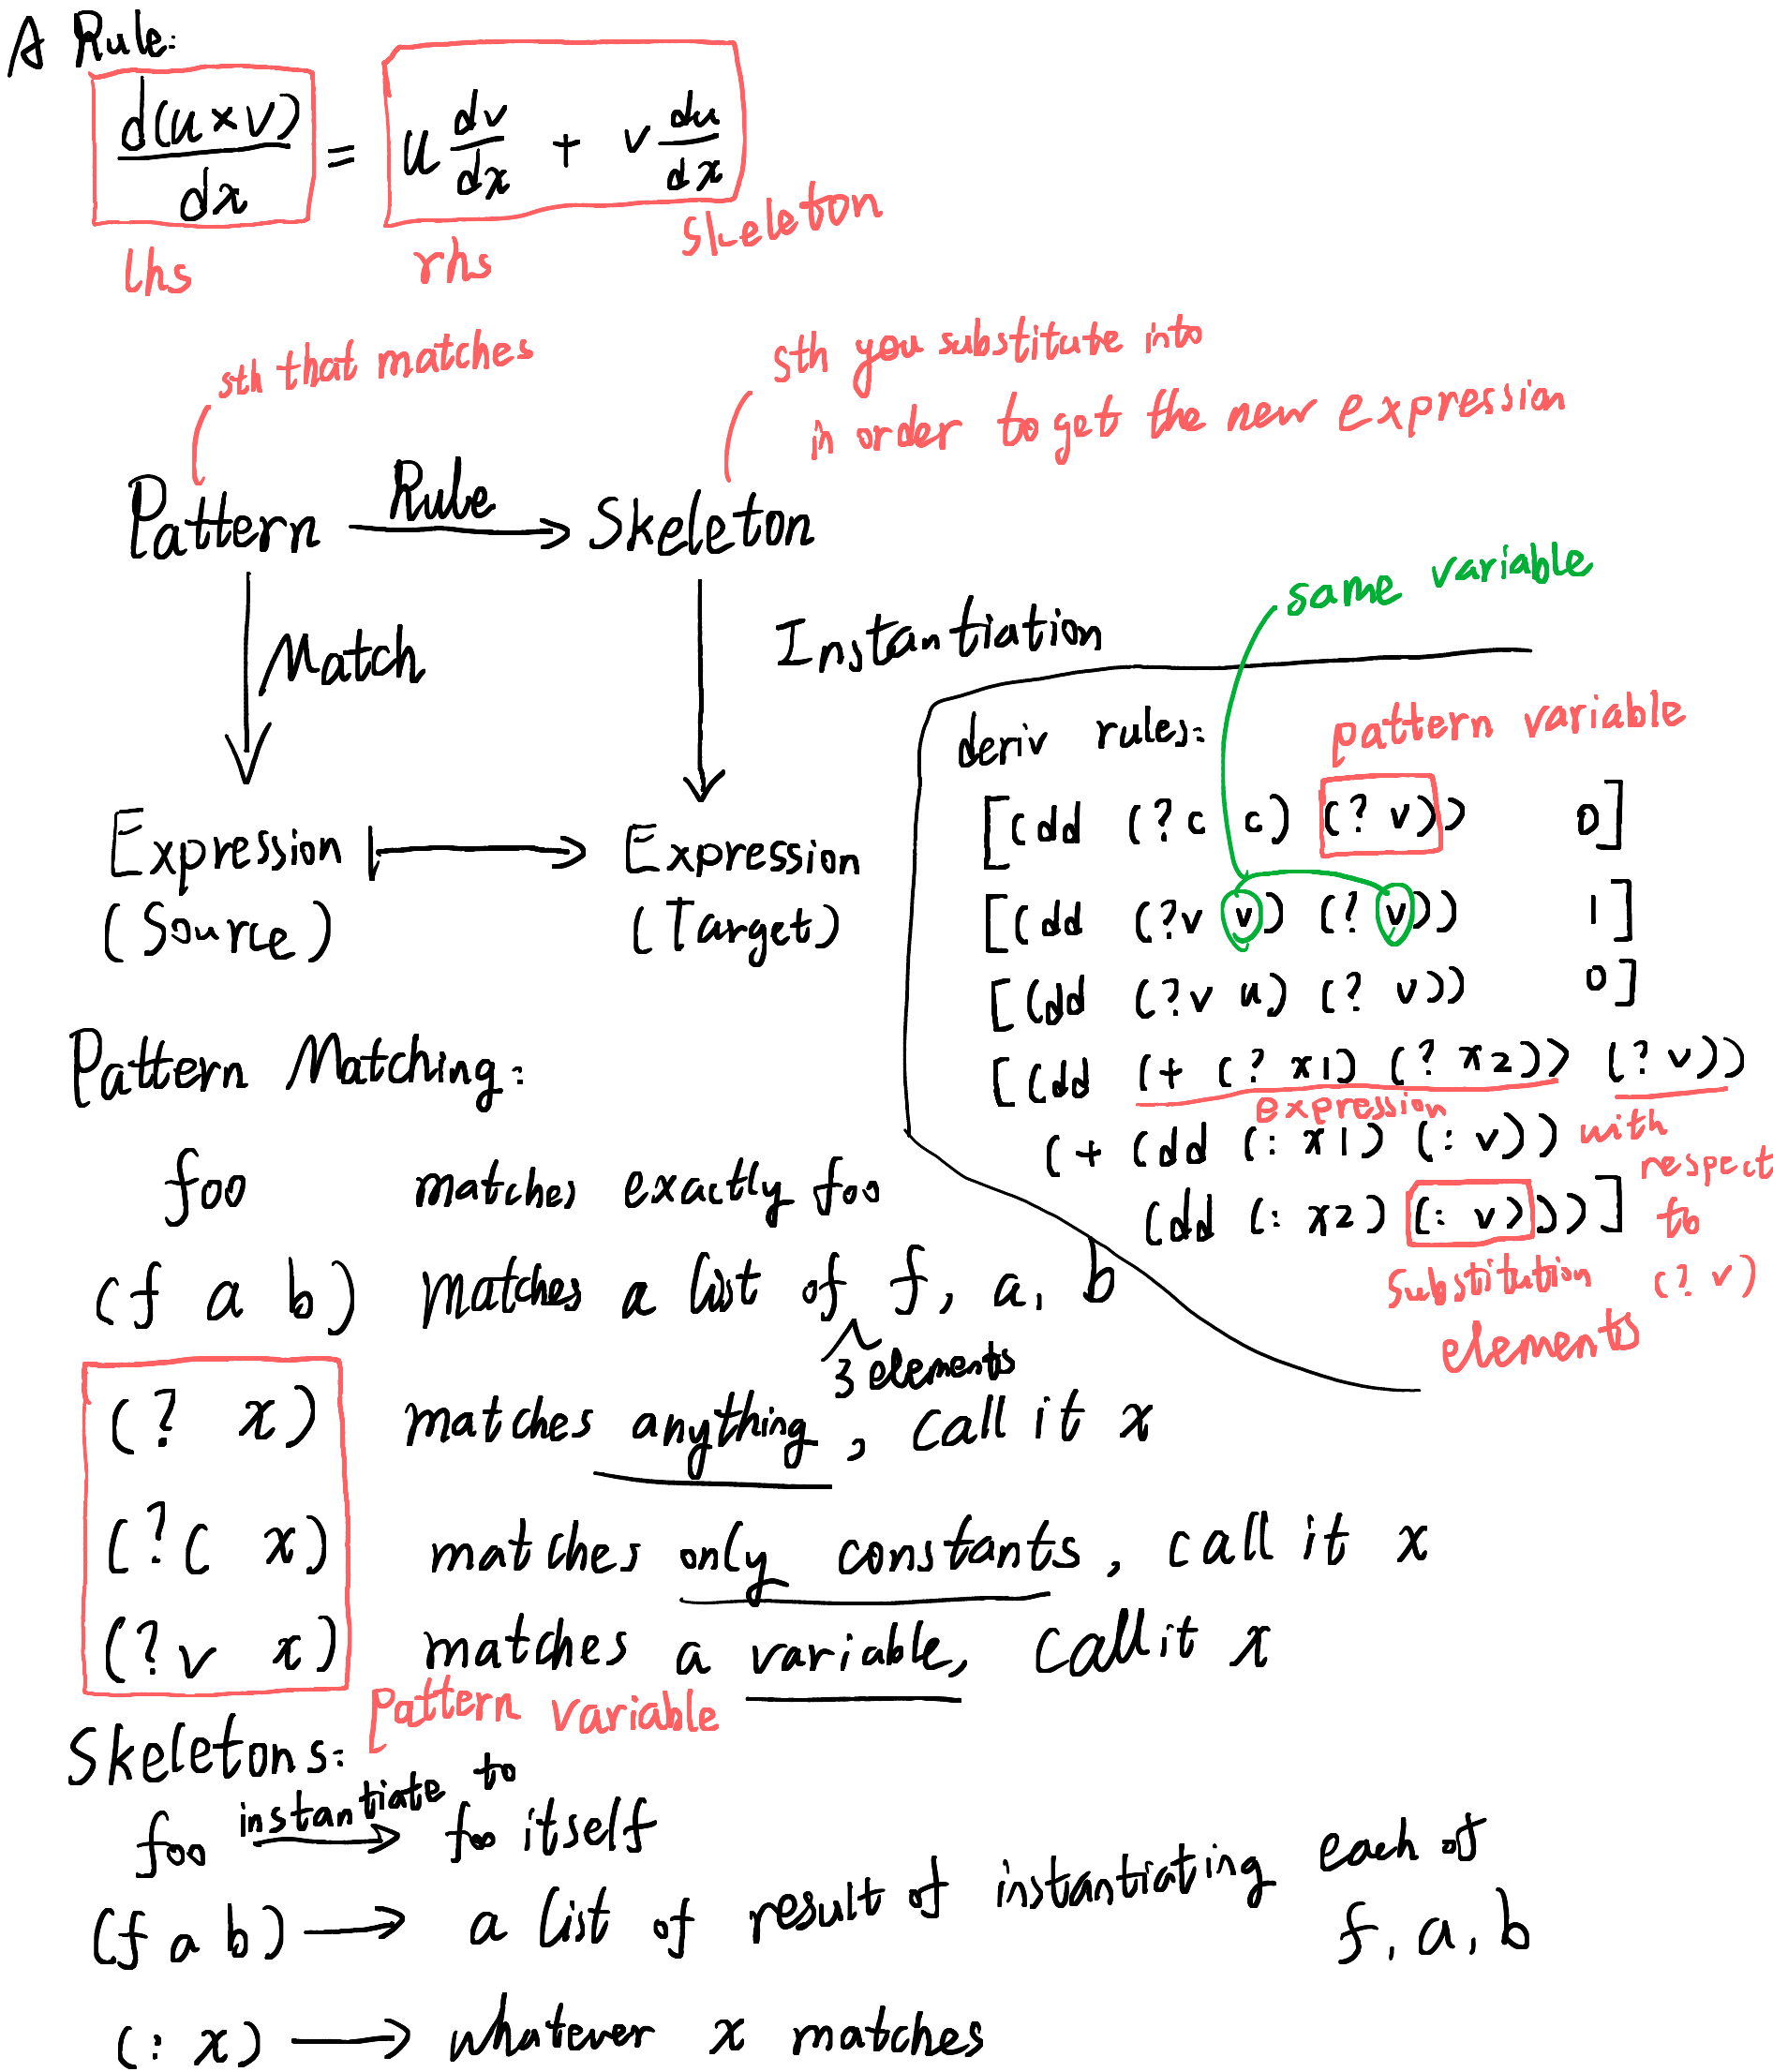 A Rule:
d(u×v)/dx = u dv/dx + v du/dx
lhs rhs skeleton
sth that matches
sth you substitute into
in order to get the new expression
Pattern Rule Skeleton
Match Instantiation
Expression Expression
(Source) (Target)
same variable
deriv rules: pattern variable
[(dd (?c c) (? v)) 0]
[(dd (?v v) (? v)) 1]
[(dd (?v u) (? v)) 0]
[(dd (+ (? x1) (? x2)) (? v))
expression with
(+ (dd (: x1) (: v)) respect
(dd (: x2) (: v)))] to
Substitution (? v)
elements
Pattern Matching:
foo matches exactly foo
(f a b) matches a list of f, a, b
3 elements
(? x) matches anything, call it x
(?c x) matches only constants, call it x
(?v x) matches a variable, call it x
pattern variable
Skeletons:
foo instantiate to foo itself
(f a b) → a list of result of instantiating each of
f, a, b
(: x) → whatever x matches